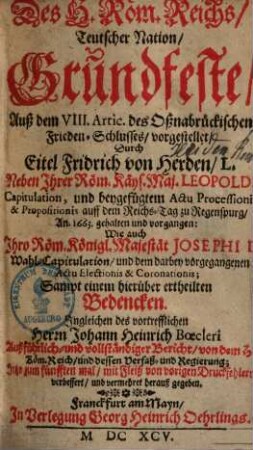 Des H. Röm. Reichs/
Teutscher Nation/
Grundfeste/
Auß dem VIII. Artic. des Oßnabrückischen
Frieden-Schlusses/ vorgestellet/
Durch
Eitel Fridrich von Herden/ L.
Neben Ihrer Röm. Käys. Maj. LEOPOLD
Capitulation, und beygefügtem Actu Processioni
& Propositionis auff dem Reichs-Tag zu Regenspurg/
An. 1663. gehalten und vorgangen:
Die auch
Ihro Röm. Königl. Majestät JOSEPHI I
Wahl-Capitulation/ und dem darbey vorgegangenen
Actu Electionis & Coronationis;
Sampt einem hierüber ertheilten
Bedencken.
Ingleichen des vortrefflichen
Herrn Johann Heinrich Bœcleri
Außführlich- und vollständiger Bericht/ von dem H.
Röm. Reich/ und dessen Verfass- und Regierung;
zum fünfften mal/ mit Fleiß von vorigen Druckfehlern
verbessert/ und vermehret herauß gegeben.
Franckfurt am Mayn/
In Verlegung Georg Heinrich Oehrlings.
M DC XCV.